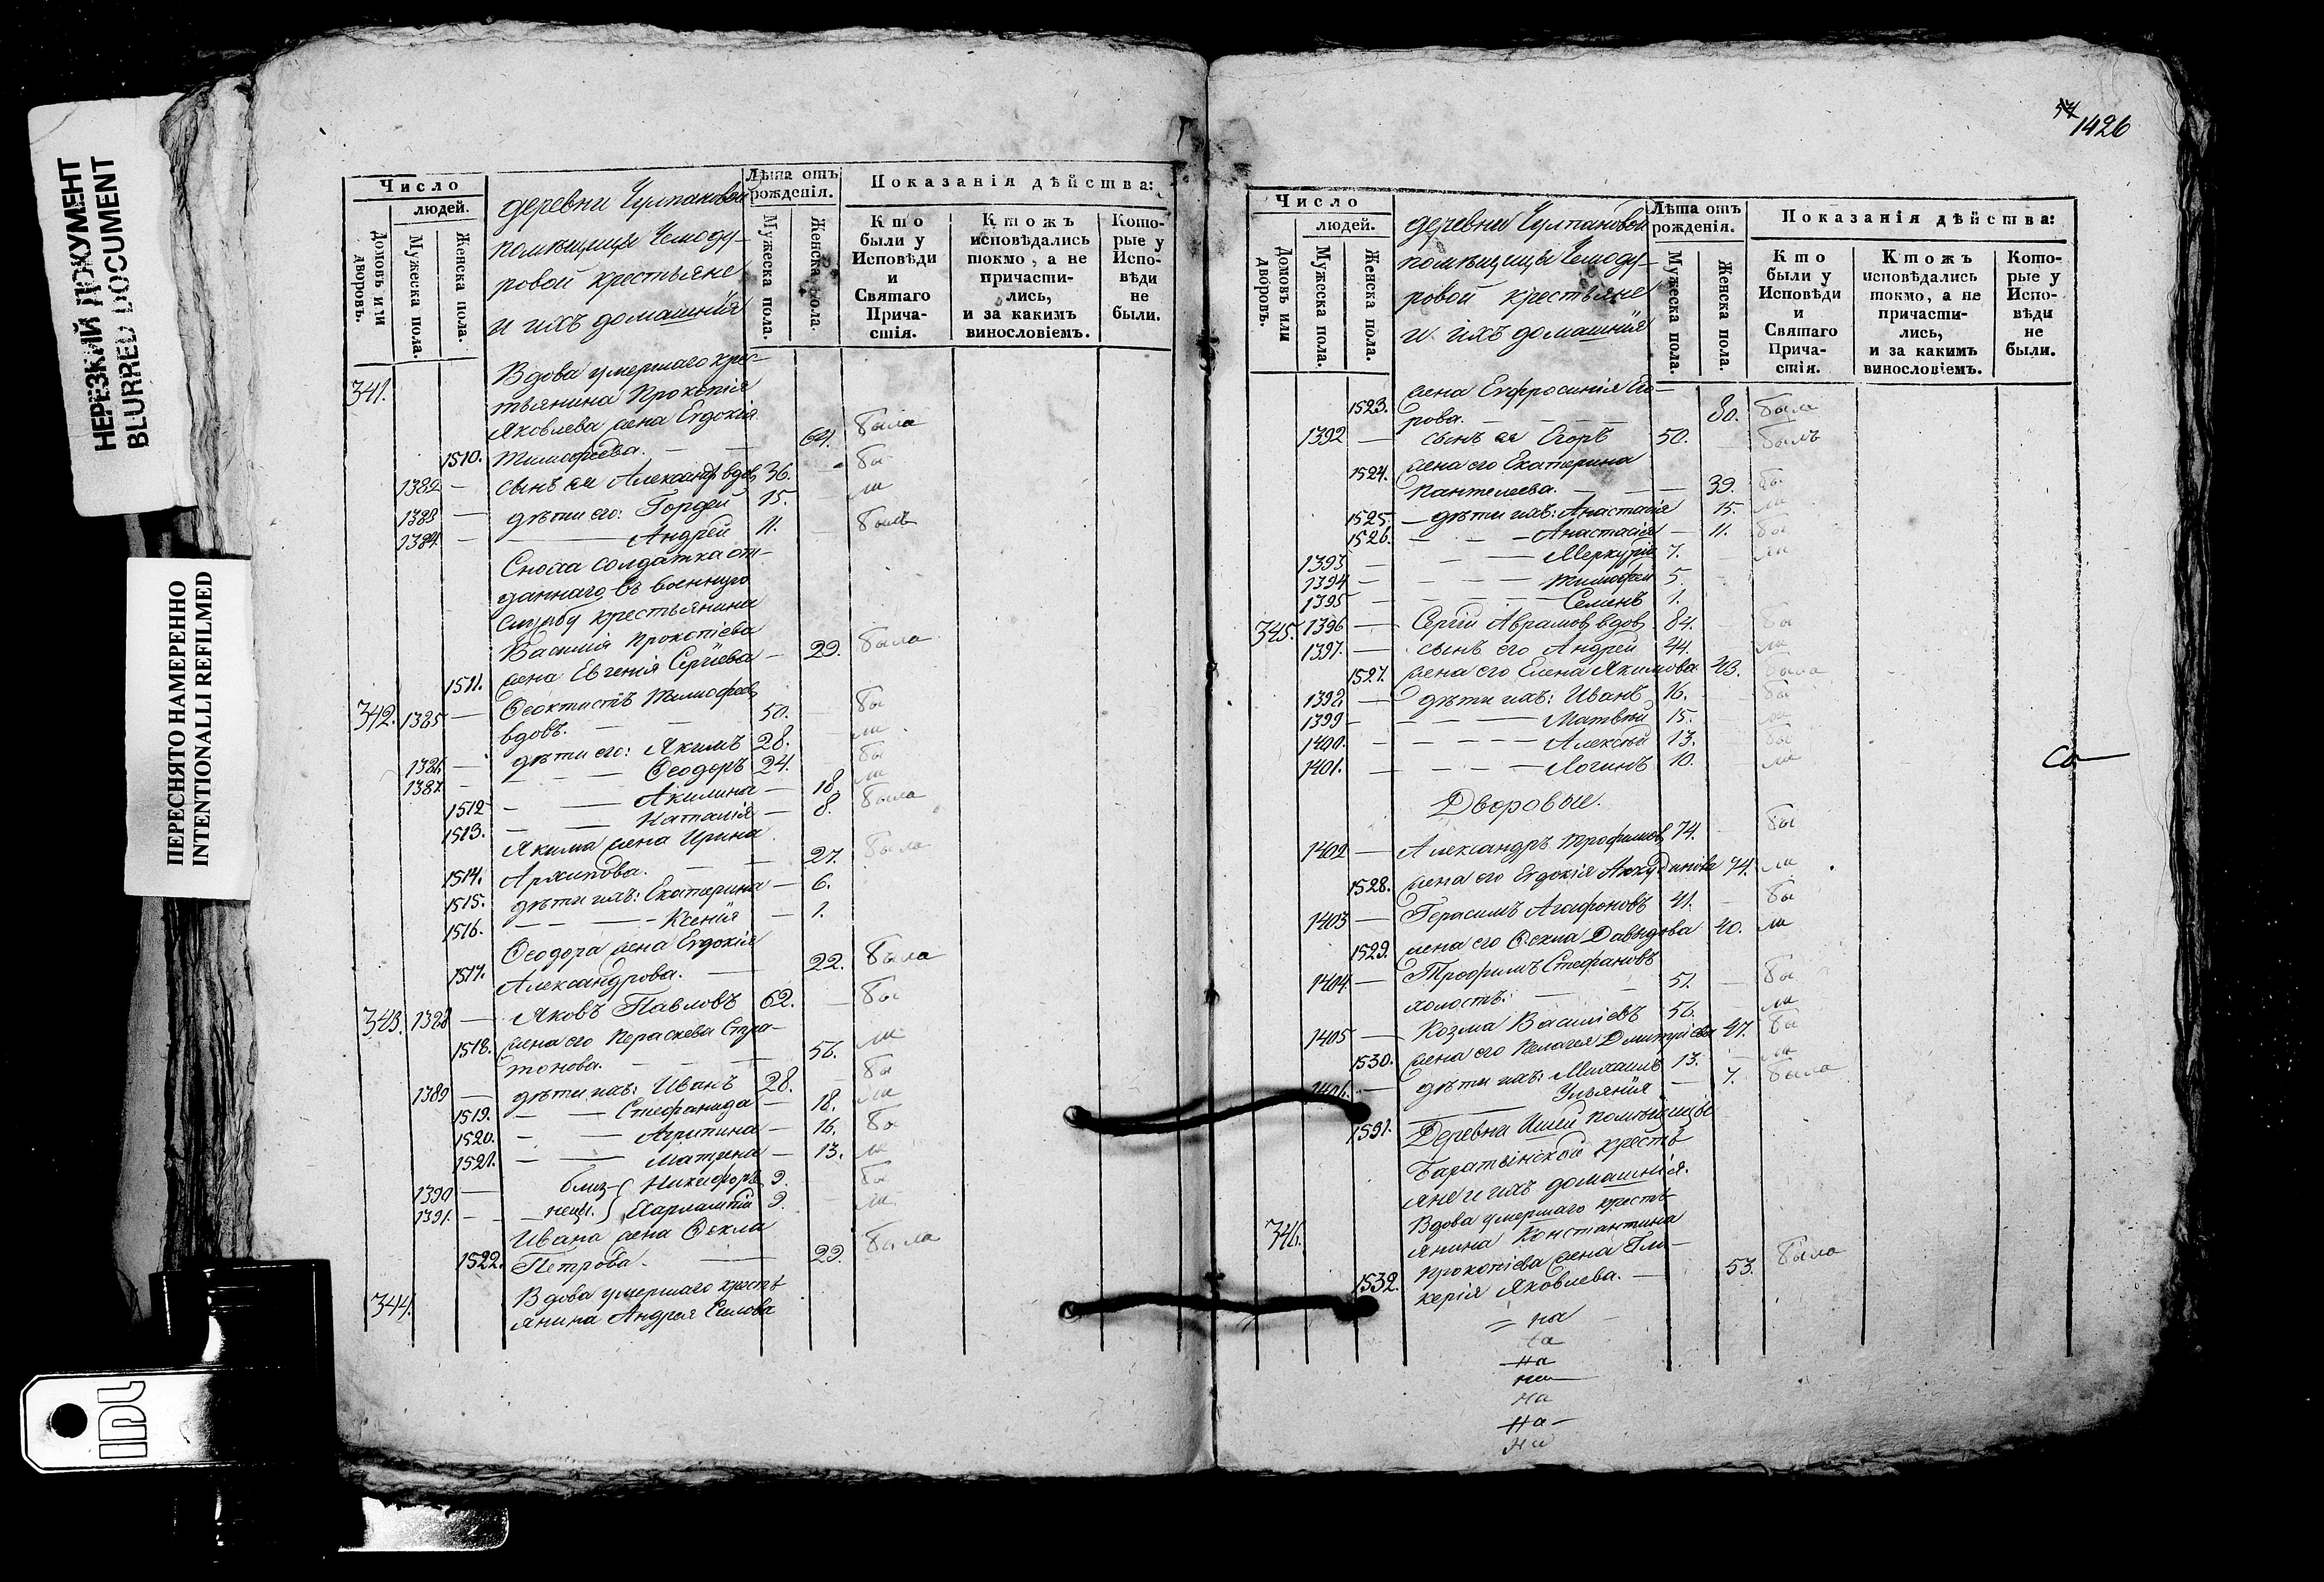 НЕРЕЗКИЙ ДОКУМЕНТ
BLURRED DOCUMENT
ПЕРЕСНЯТО НАМЕРЕННО
INTENTIONALLI REFILMED
Число
людей.
Домовъ или дворовъ.
Мужеска пола.
Женска пола.
деревни Чулпановой
помѣщицы Чемоду-
ровой крестьяне
и ихъ домашнія
Лѣта отъ рожденія.
Мужеска пола.
Женска пола.
Показанія дѣйства:
Кто были у Исповѣди и Святаго Прича-стія.
Ктожъ исповѣдались токмо, а не причасти-лись, и за какимъ винословіемъ.
Кото-рые у Испо-вѣди не были.
341. Вдова умершаго крес-
тьянина Прокопія
Яковлева жена Евдокія
1510. Тимофеева. — 64. была
1382 — сынъ ея Александръ вдов 36. — бы
1383 — дѣти его: Гордей 15. — ли
1384 — Андрей 11. — былъ
Сноха солдатка от-
даннаго въ военную
службу крестьянина
Василія Прокопіева
1511. жена Евгенія Сергіева — 29. была
342. 1385 — Феоктистъ Тимофеев
вдовъ. — 50. — бы
1386 — дѣти его: Якимъ 28. — ли
1387 — — Феодоръ 24. — бы
1512 — — Акилина — 18. ли
1513. — — Наталія — 8. была
Якима жена Ирина
1514. Архипова. — — 27. была
1515. дѣти ихъ: Екатерина — 6.
1516. — — — Ксенія — 1.
Феодора жена Евдокія
1517. Александрова. — 22. была
343. 1388 — Яковъ Павловъ 62. — бы
1518. жена его Параскева Стра-
тонова. — — 56. ли
1389 — дѣти ихъ: Иванъ 28. — бы
1519. — — Стефанида — 18. ли
1520. — — Агрипина — 16. бы
1521. — — Матрена — 13. ли
1390 — близ- Никифоръ 9. — бы
1391. — нецы. Харлампій 9. — ли
Ивана жена Фекла
1522. Петрова. — 29. была
344. Вдова умершаго кресть
янина Андрея Емлова
1426
Число
людей.
Домовъ или дворовъ.
Мужеска пола.
Женска пола.
деревни Чулпановой
помѣщицы Чемоду-
ровой крестьяне
и ихъ домашнія
Лѣта отъ рожденія.
Мужеска пола.
Женска пола.
Показанія дѣйства:
Кто были у Исповѣди и Святаго Прича-стія.
Ктожъ исповѣдались токмо, а не причасти-лись, и за какимъ винословіемъ.
Кото-рые у Испо-вѣди не были.
1523. жена Евфросинія Его-
рова. — — — 80. была
1392 — сынъ ея Егоръ 50. — былъ
1524. жена его Екатерина
Пантелеева. — — 39. бы
1525. — дѣти ихъ: Анастасія 15. ли
1526. — — — Анастасія — 11. бы
1393 — — — Меркурій 7. — ли
1394 — — — — Тимофей 5.
1395 — — — — Семенъ 1.
345. 1396 — Сергій Аврамов вдов 84. — бы
1397. — сынъ его Андрей 44. — ли
1527. жена его Елена Якимова 43. была
1398 — дѣти ихъ: Иванъ 16. — бы
1399 — — — — Матвѣй 15. — ли
1400. — — — — Алексѣй 13. — бы
1401. — — — — Логинъ 10. — ли
Дворовые.
1402 — Александръ Трофимов 74. — бы
1528. жена его Евдокія Анкудинова 74. ли
1403 — Герасимъ Агафоновъ 41. — бы
1529. жена его Фекла Давыдова 40. ли
1404 — Трофимъ Стефановъ
холостъ. — — 51. — бы
1405 — Козма Василіевъ 56. — ли
1530. жена его Пелагея Дмитріева 47. бы
1406. — дѣти ихъ: Михаилъ 13. — ли
1531. — Ульянія — 7. была
Деревни Ишей помѣщицы
Баратынской кресть
яне и ихъ домашнія.
346. Вдова умершаго кресть
янина Константина
Прокопіева жена Гли-
1532. керія Яковлева. — 53. была